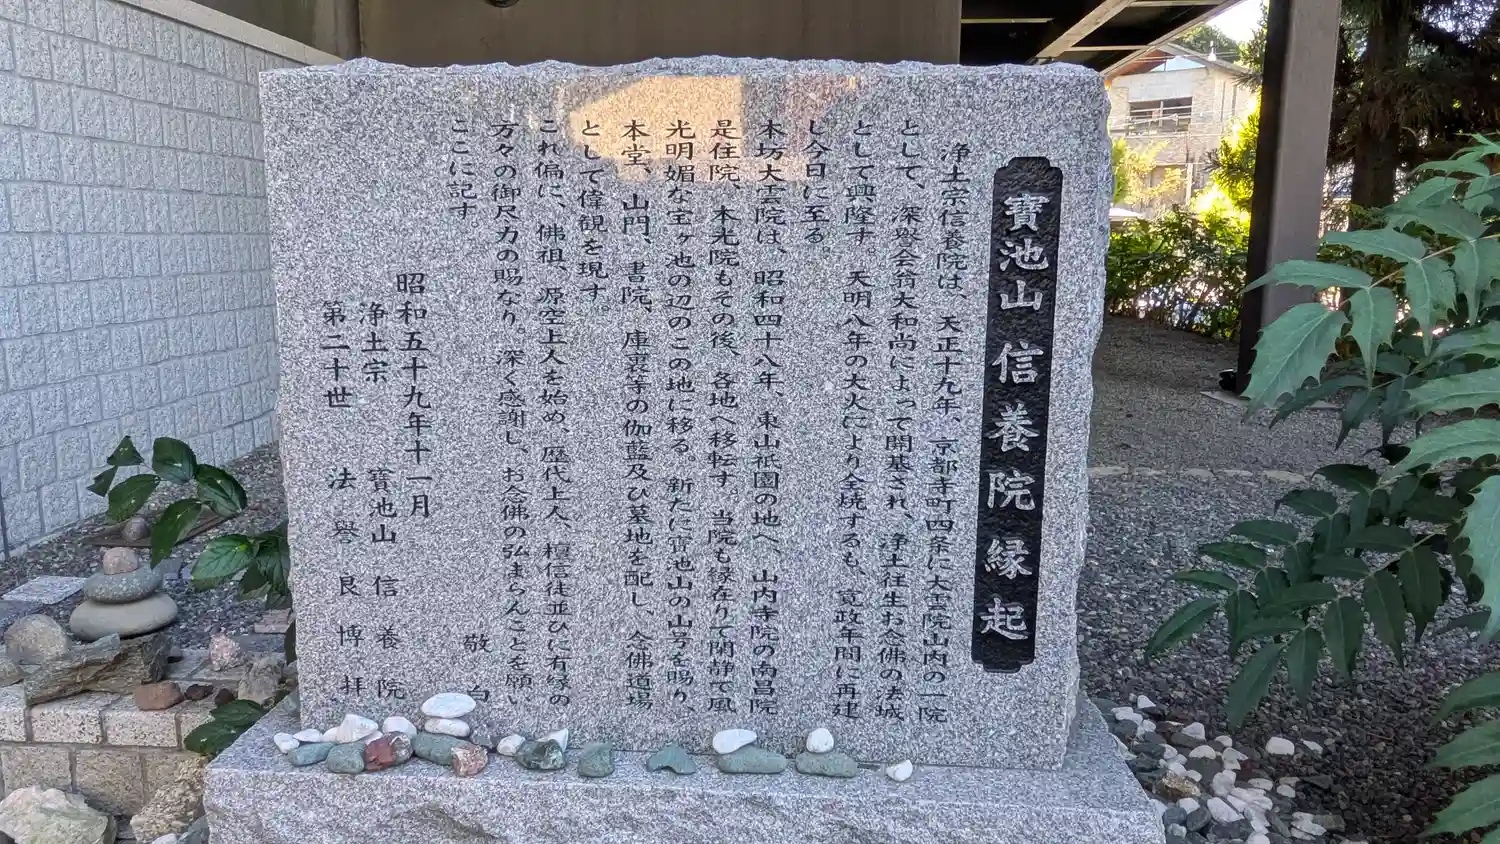 寶池山信養院縁起
浄土宗信養院は、天正十九年、京都寺町四条に大雲院山内の一院
として、深譽会翁大和尚によって開基され、浄土往生お念佛の法城
として興隆す。天明八年の大火により全焼するも、寛政年間に再建
し今日に至る。
本坊大雲院は、昭和四十八年、東山祇園の地へ、山内寺院の南昌院
是住院、本光院もその後、各地へ移転す。当院も縁在りて閑静で風
光明媚な宝ヶ池の辺のこの地に移る。新たに寶池山の山号を賜り、
本堂、山門、書院、庫裏等の伽藍及び墓地を配し、念佛道場
として偉観を現す。
これ偏に、佛祖、源空上人を始め、歴代上人、檀信徒並びに有縁の
方々の御尽力の賜なり。深く感謝し、お念佛の弘まらんことを願い
ここに記す。
敬白
昭和五十九年十一月
浄土宗 寶池山信養院
第二十世 法譽良博拝